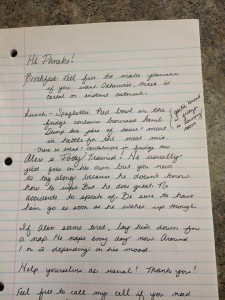 Hi Pareks!
Breakfast: Feel free to make pancakes
if you want. Otherwise, there is
cereal or instant oatmeal.
Lunch - Spaghetti. Red bowl in the
fridge contains browned meat.
Dump in jar of sauce & meat
in kettle for the meat mix.
- There is salad & cantaloupe in fridge too.
Alex is Potty Trained! He usually
just goes on his own but you need
to tag along because he doesn't know
how to wipe. But he does great. No
accidents to speak of. Be sure to have
him go as soon as he wakes up though.
If Alex seems tired, lay him down for
a nap. He naps every day now. Around
1 or 2 depending on his mood.
Help yourselves as usual! Thank you!
Feel free to call my cell if you need